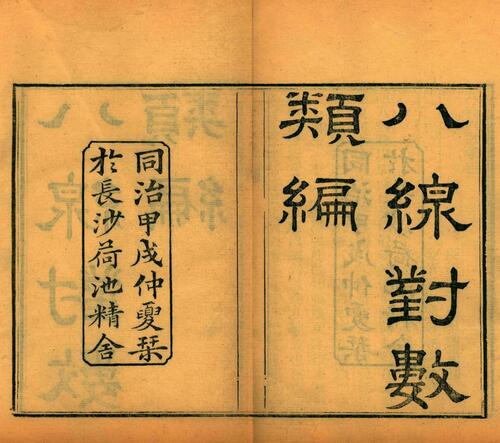 八線對數
類編
同治甲戌仲夏栞
於長沙荷池精舍